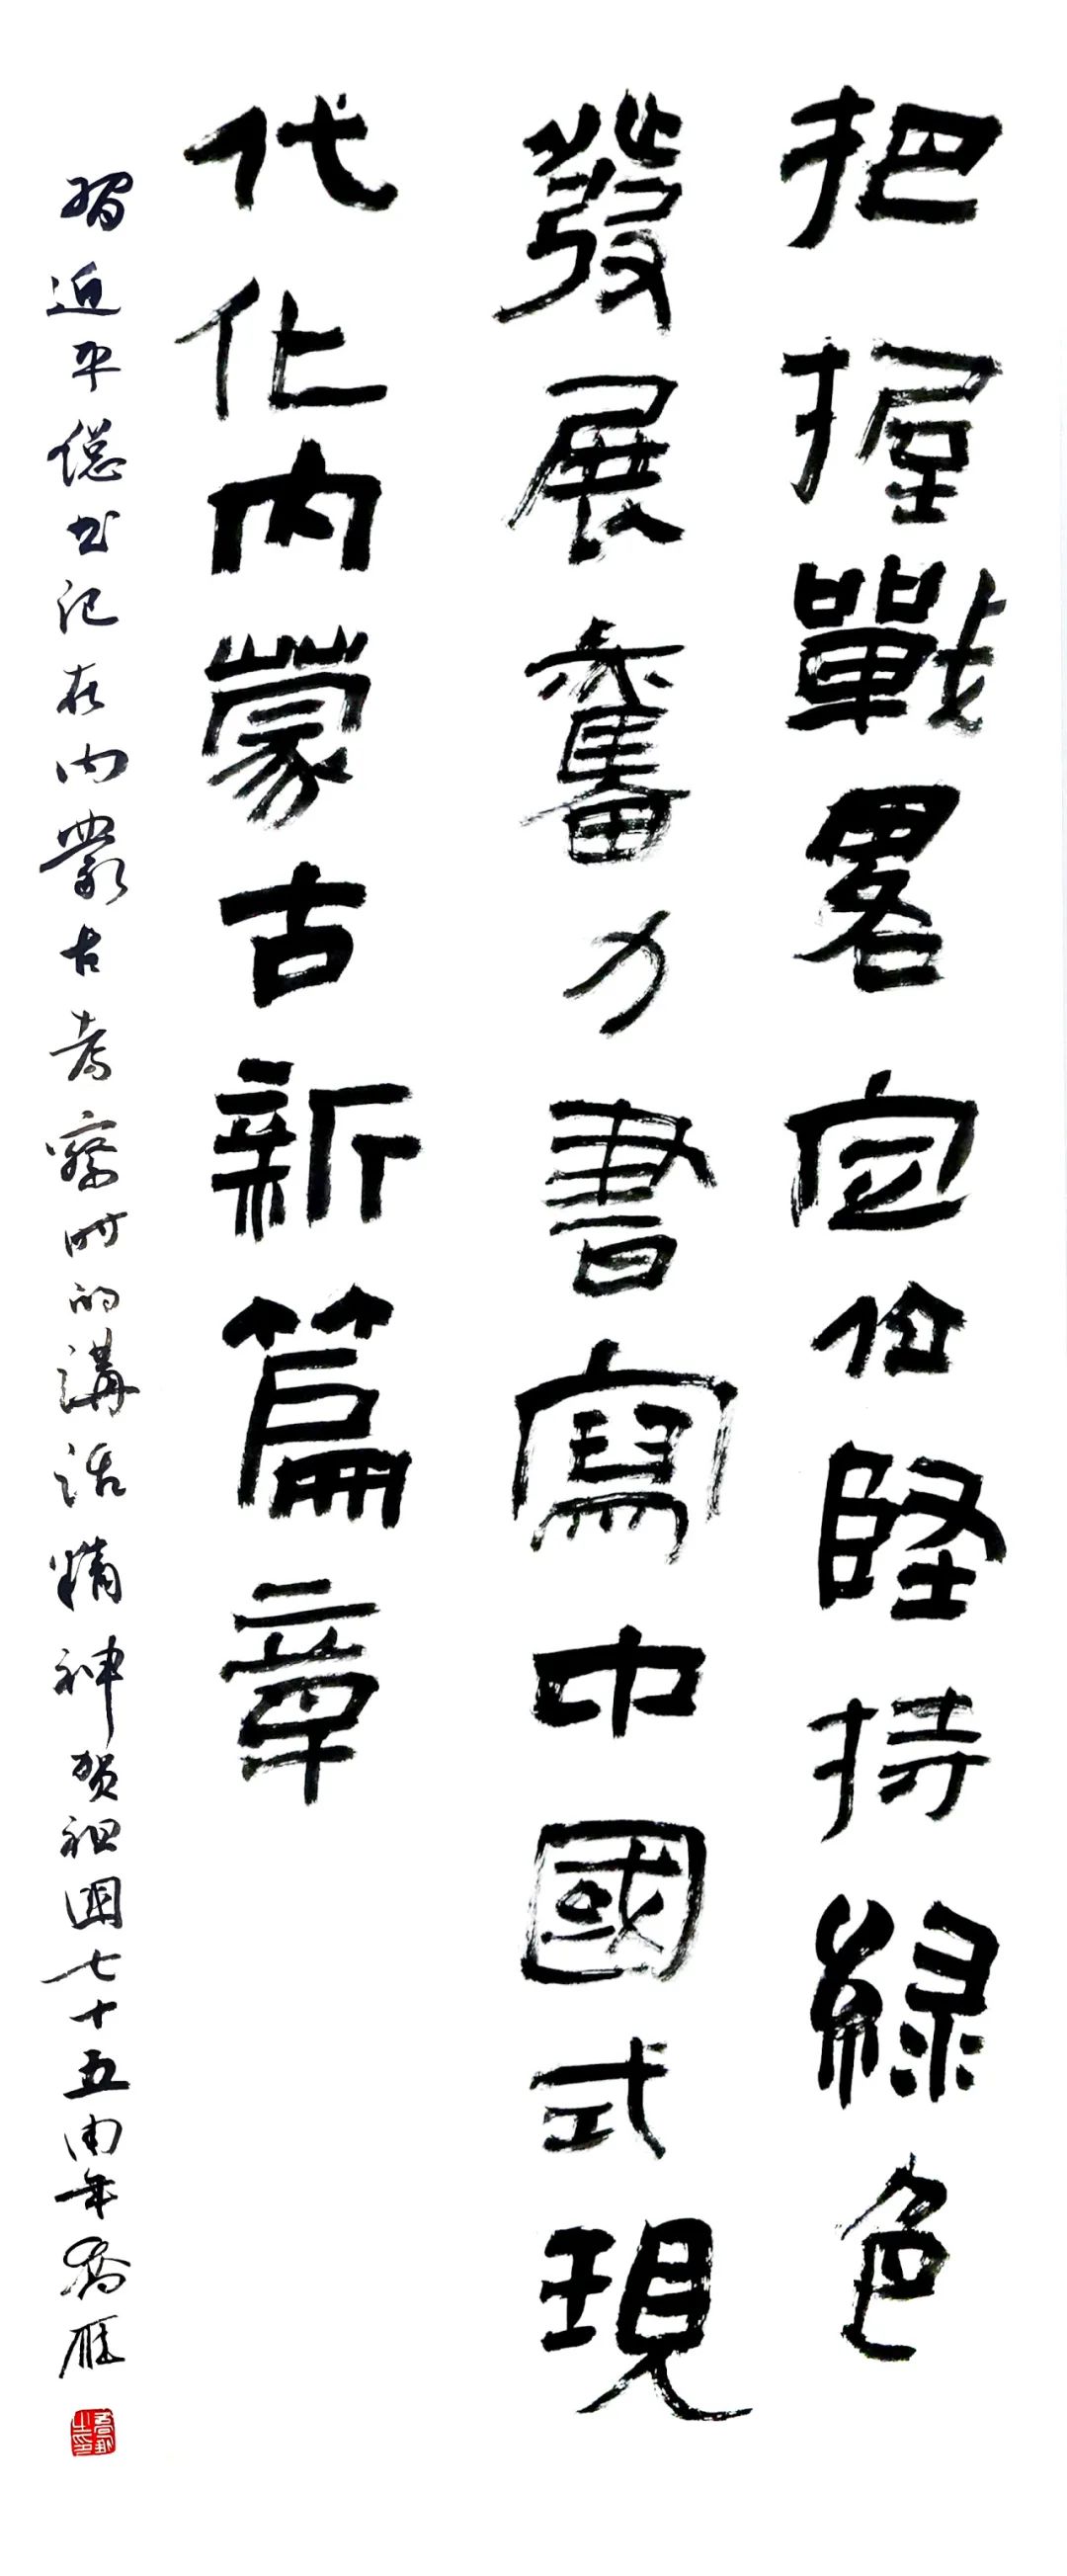 把握戰畧定位堅持綠色
發展奮力書寫中國式現
代化内蒙古新篇章
習近平總书记在内蒙古考察时的講話精神贺祖國七十五周年喬雁